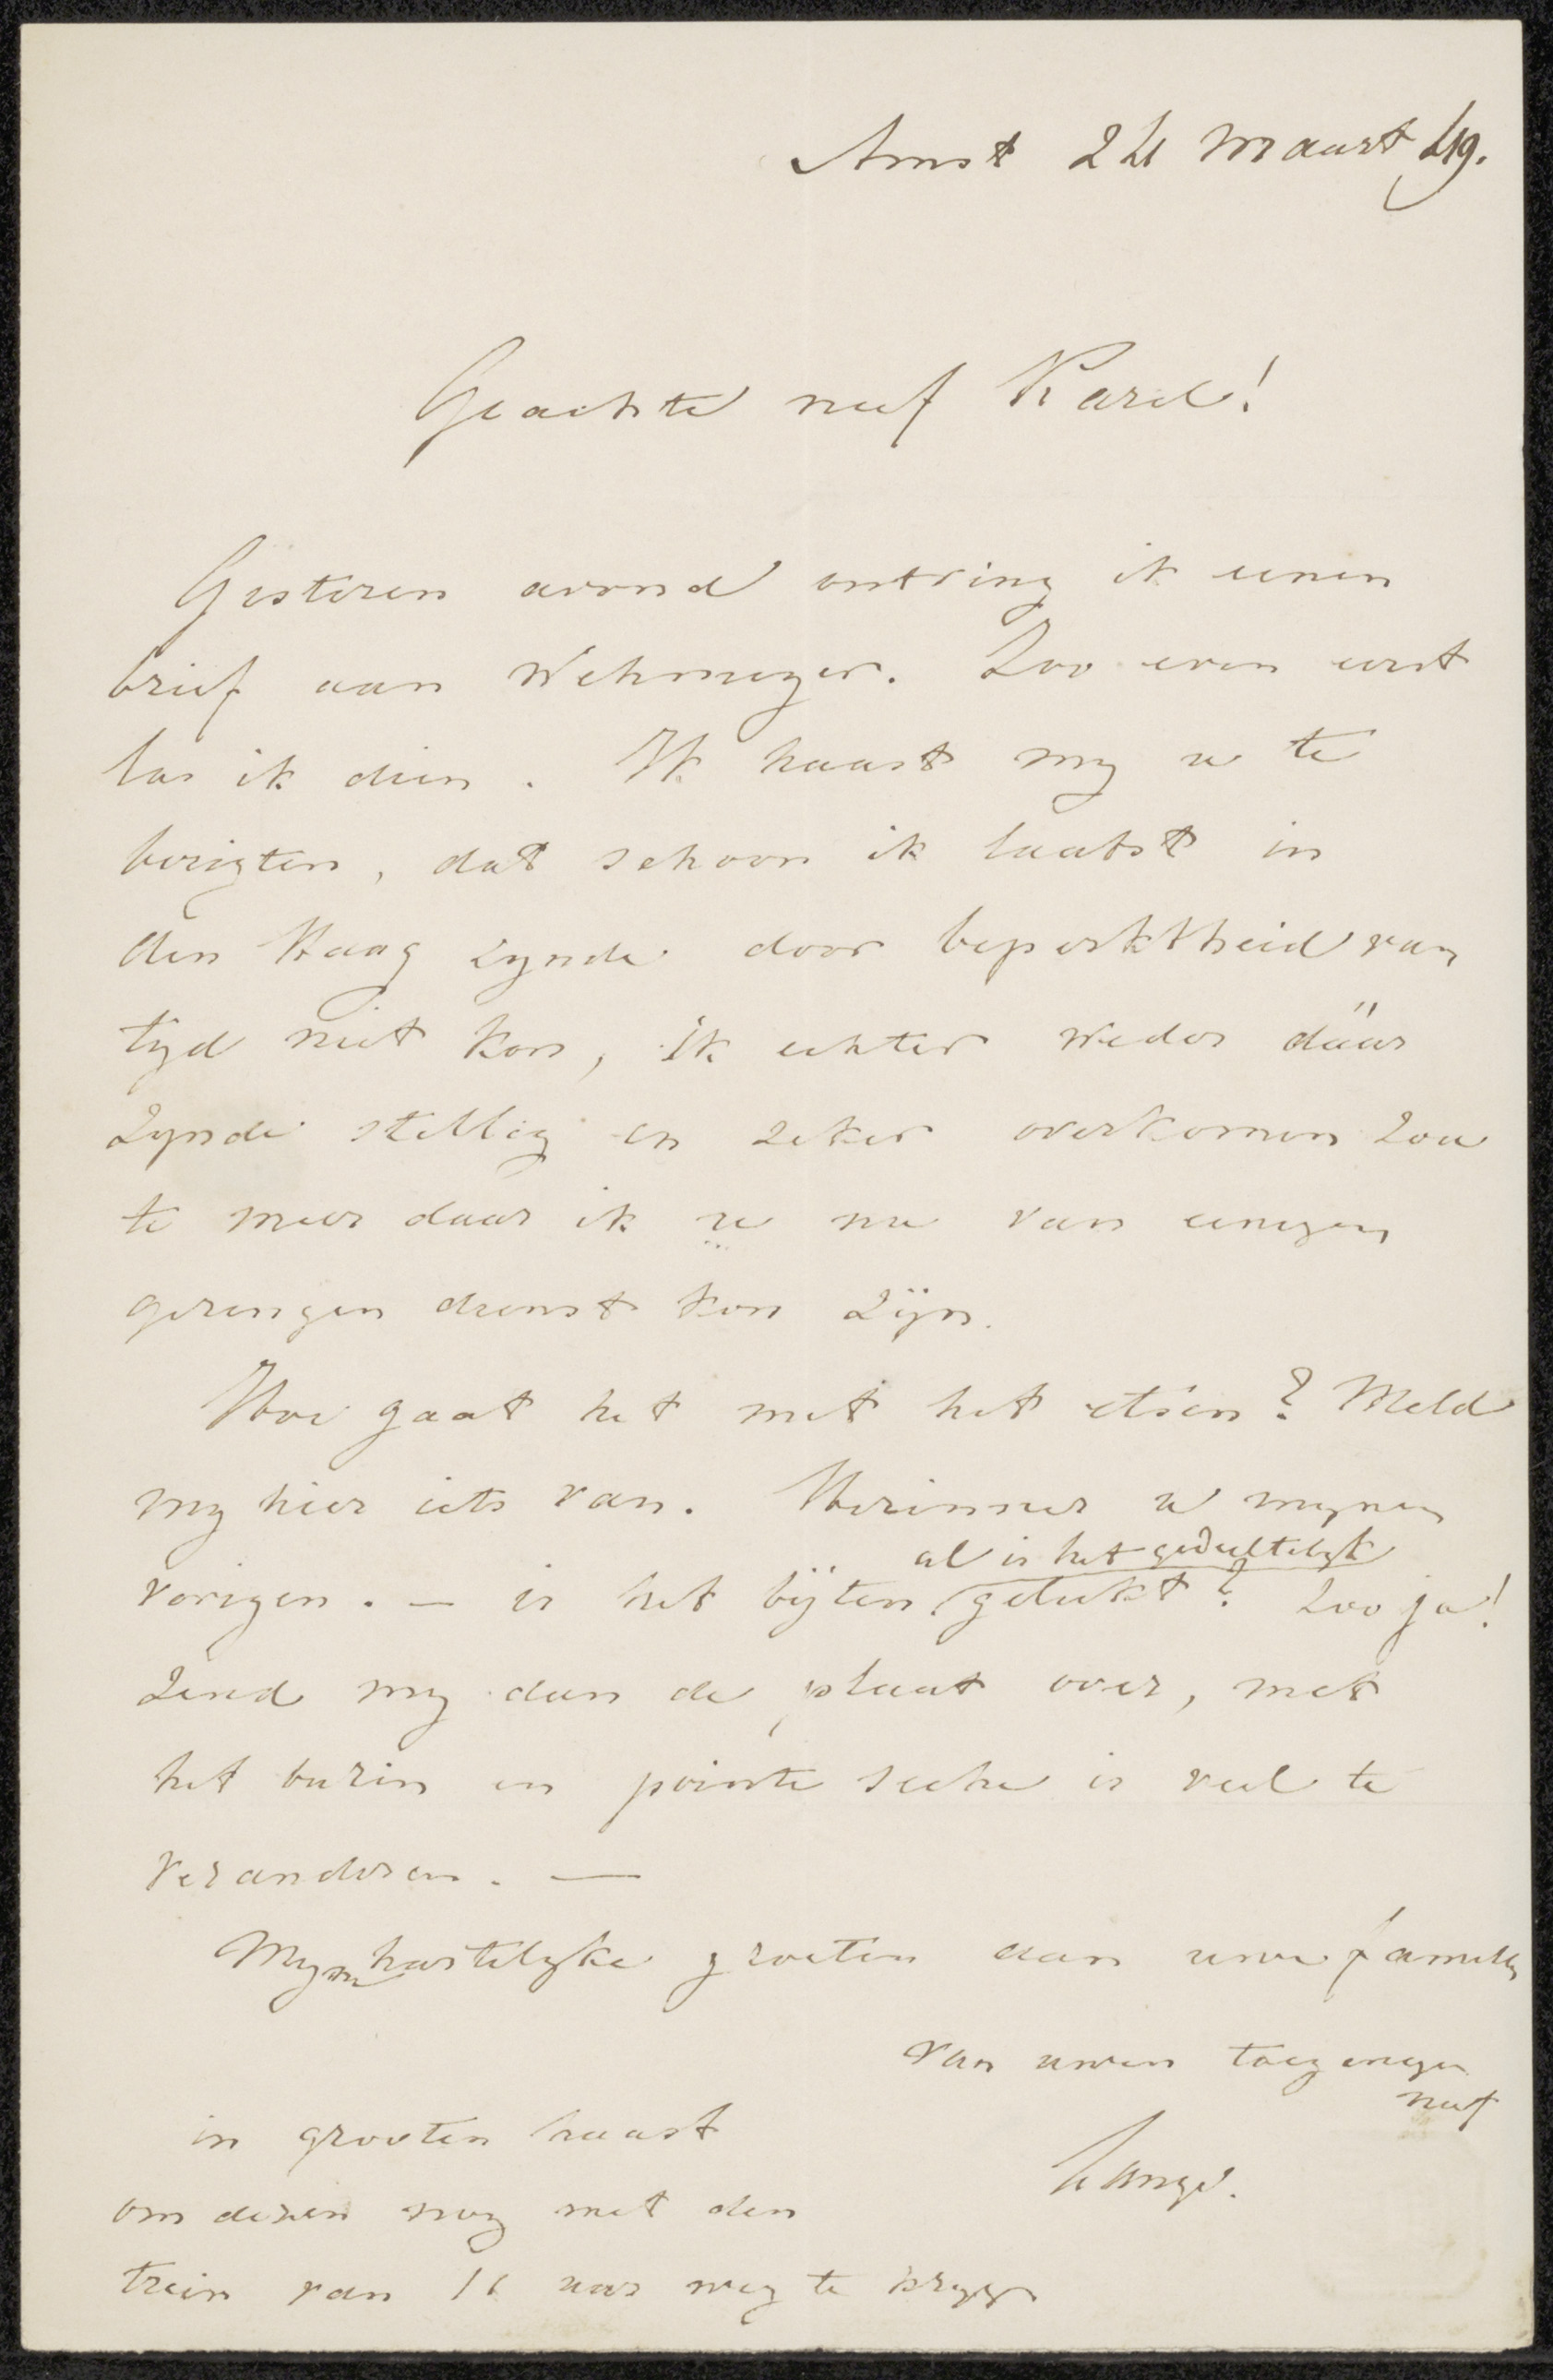 Amst 24 Maart 49.
Geachte neef Karel!
Gisteren avond ontving ik eenen
brief aan Wehmeyer. Zoo even eerst
las ik dien. Ik haast my u te
berigten, dat schoon ik laatst in
den Haag zynde door beperktheid van
tyd niet kon, ik echter weder dáár
zynde stellig en zeker overkomen zou
te meer daar ik u nu van eenigen
geringen dienst kon zijn.
Hoe gaat het met het etsen? Meld
my hier iets van. Herinner u mynen
al is het gedeeltelyk
vorigen. — is het bijten gelukt? Zoo ja!
Zend my dan de plaat over, met
het burin en pointe seche is veel te
veranderen. —
Myne hartelyke groeten aan uwe familie
van uwen toegenegen
neef
in grooten haast
om dezen nog met den
trein van 11 uur weg te krygen